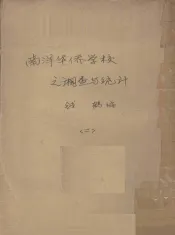 南洋华侨学校
之调查与统计
钱鹤编
(二)